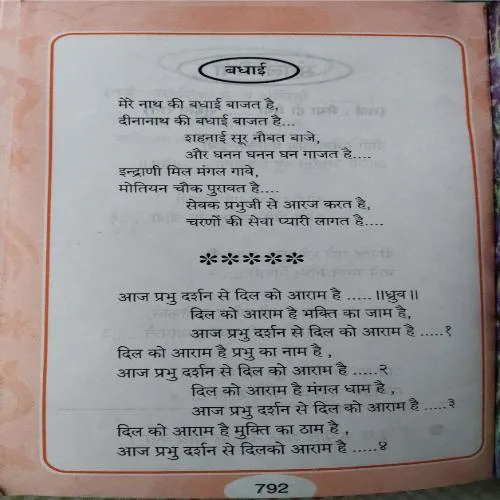 बधाई
मेरे नाथ की बधाई बाजत है,
दीनानाथ की बधाई बाजत है...
शहनाई सूर नौबत बाजे,
और घनन घनन घन गाजत है....
इन्द्राणी मिल मंगल गावे,
मोतियन चौक पुरावत है....
सेवक प्रभुजी से आरज करत है,
चरणों की सेवा प्यारी लागत है....
*****
आज प्रभु दर्शन से दिल को आराम है ..... ॥ध्रुव॥
दिल को आराम है भक्ति का जाम है,
आज प्रभु दर्शन से दिल को आराम है .....१
दिल को आराम है प्रभु का नाम है ,
आज प्रभु दर्शन से दिल को आराम है .....२
दिल को आराम है मंगल धाम है ,
आज प्रभु दर्शन से दिल को आराम है .....३
दिल को आराम है मुक्ति का ठाम है ,
आज प्रभु दर्शन से दिलको आराम है .....४
792